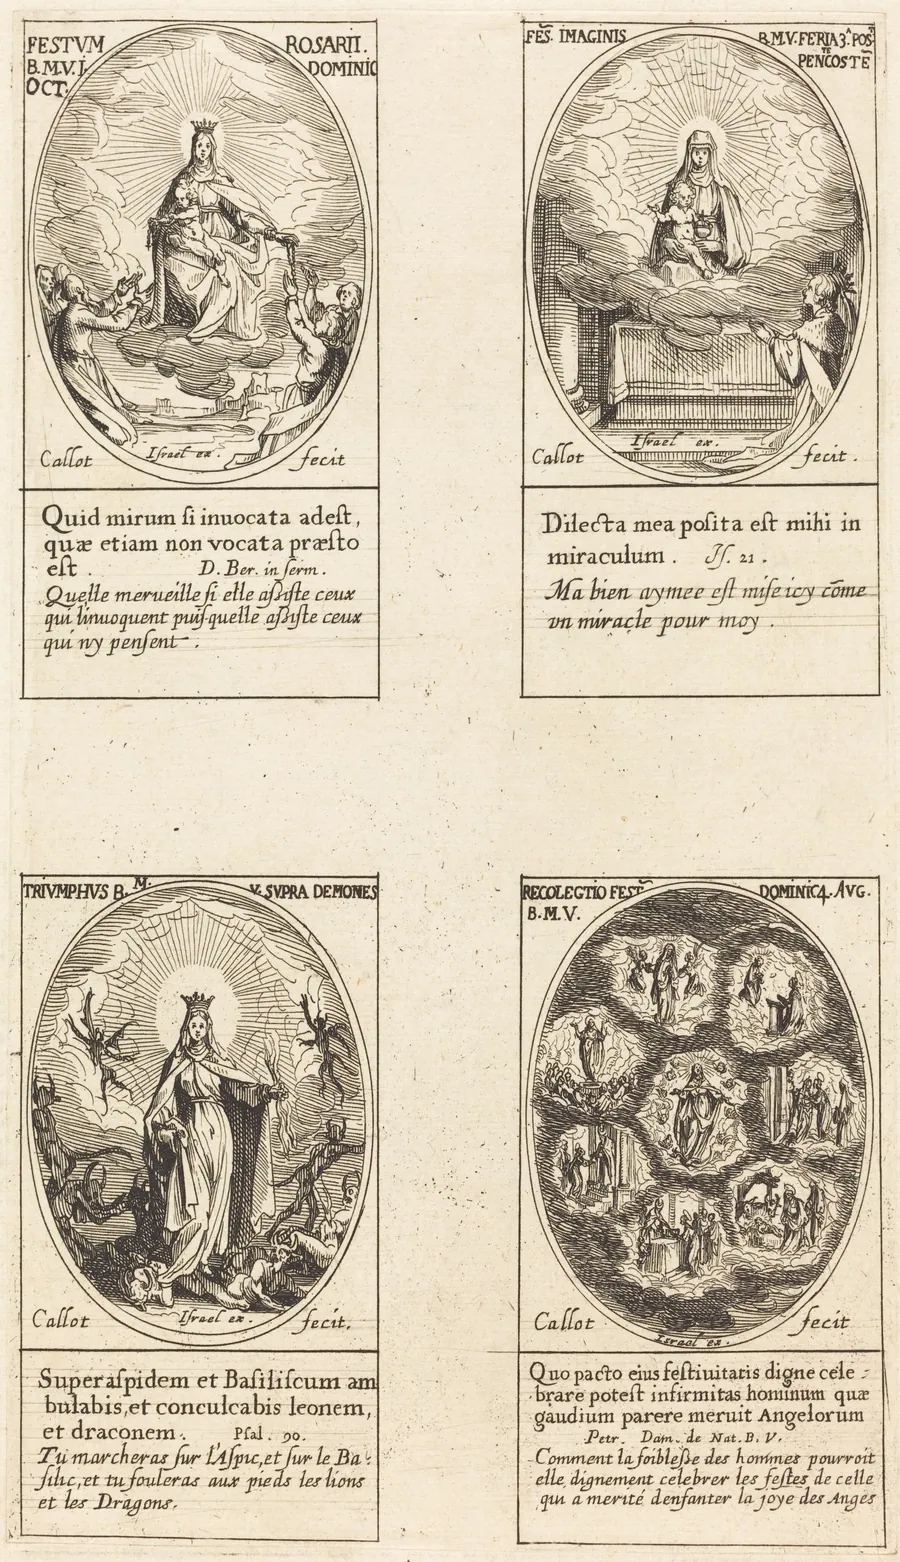 FESTVM ROSARII.
B.M.V. I. DOMINIC
OCT.
Callot Israel ex. fecit
Quid mirum ſi inuocata adeſt,
quæ etiam non vocata præſto
eſt . D. Ber. in ſerm.
Quelle merueille ſi elle aſsiſte ceux
qui l'inuoquent puiſ-quelle aſsiſte ceux
qui ny penſent .
FES̃. IMAGINIS B.M.V. FERIA 3ᴬ. POSᵀ
PENCOSTẼ
Callot Iſrael ex. fecit .
Dilecta mea poſita eſt mihi in
miraculum . Iſ. 21 .
Ma bien aymee eſt miſe icy cõme
vn miracle pour moy .
TRIVMPHVS B. M. V. SVPRA DEMONES
Callot Iſrael ex. fecit.
Super aſpidem et Baſiliſcum am
bulabis, et conculcabis leonem,
et draconem . Pſal . 90.
Tu marcheras ſur l'Aſpic, et ſur le Ba :
ſilic, et tu fouleras aux pieds les lions
et les Dragons.
RECOLECTIO FEST̃ DOMINIC 4. AVG.
B. M. V.
Callot Israel ex. fecit
Quo pacto eius feſtiuitatis digne cele :
brare poteſt infirmitas hominum quæ
gaudium parere meruit Angelorum
Petr. Dam. de Nat. B. V.
Comment la foibleſse des hommes pourroit
elle dignement celebrer les feſtes de celle
qui a merité denfanter la joye des Anges